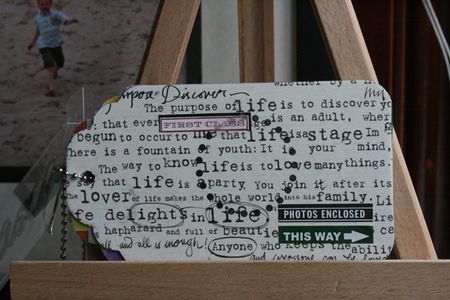 Discover
whether by a
my
The purpose of life is to discover yo
that ever is an adult, wher
FIRST CLASS
begun to occur to me that life is a stage
There is a fountain of youth: It is your mind,
The way to know life is to love many things.
say that life is a party. You join it after its
The lover of life makes the whole world into his family.
fe delights in life
PHOTOS ENCLOSED
haphazard and full of beautie
THIS WAY
and all is enough! Anyone who keeps the abilit